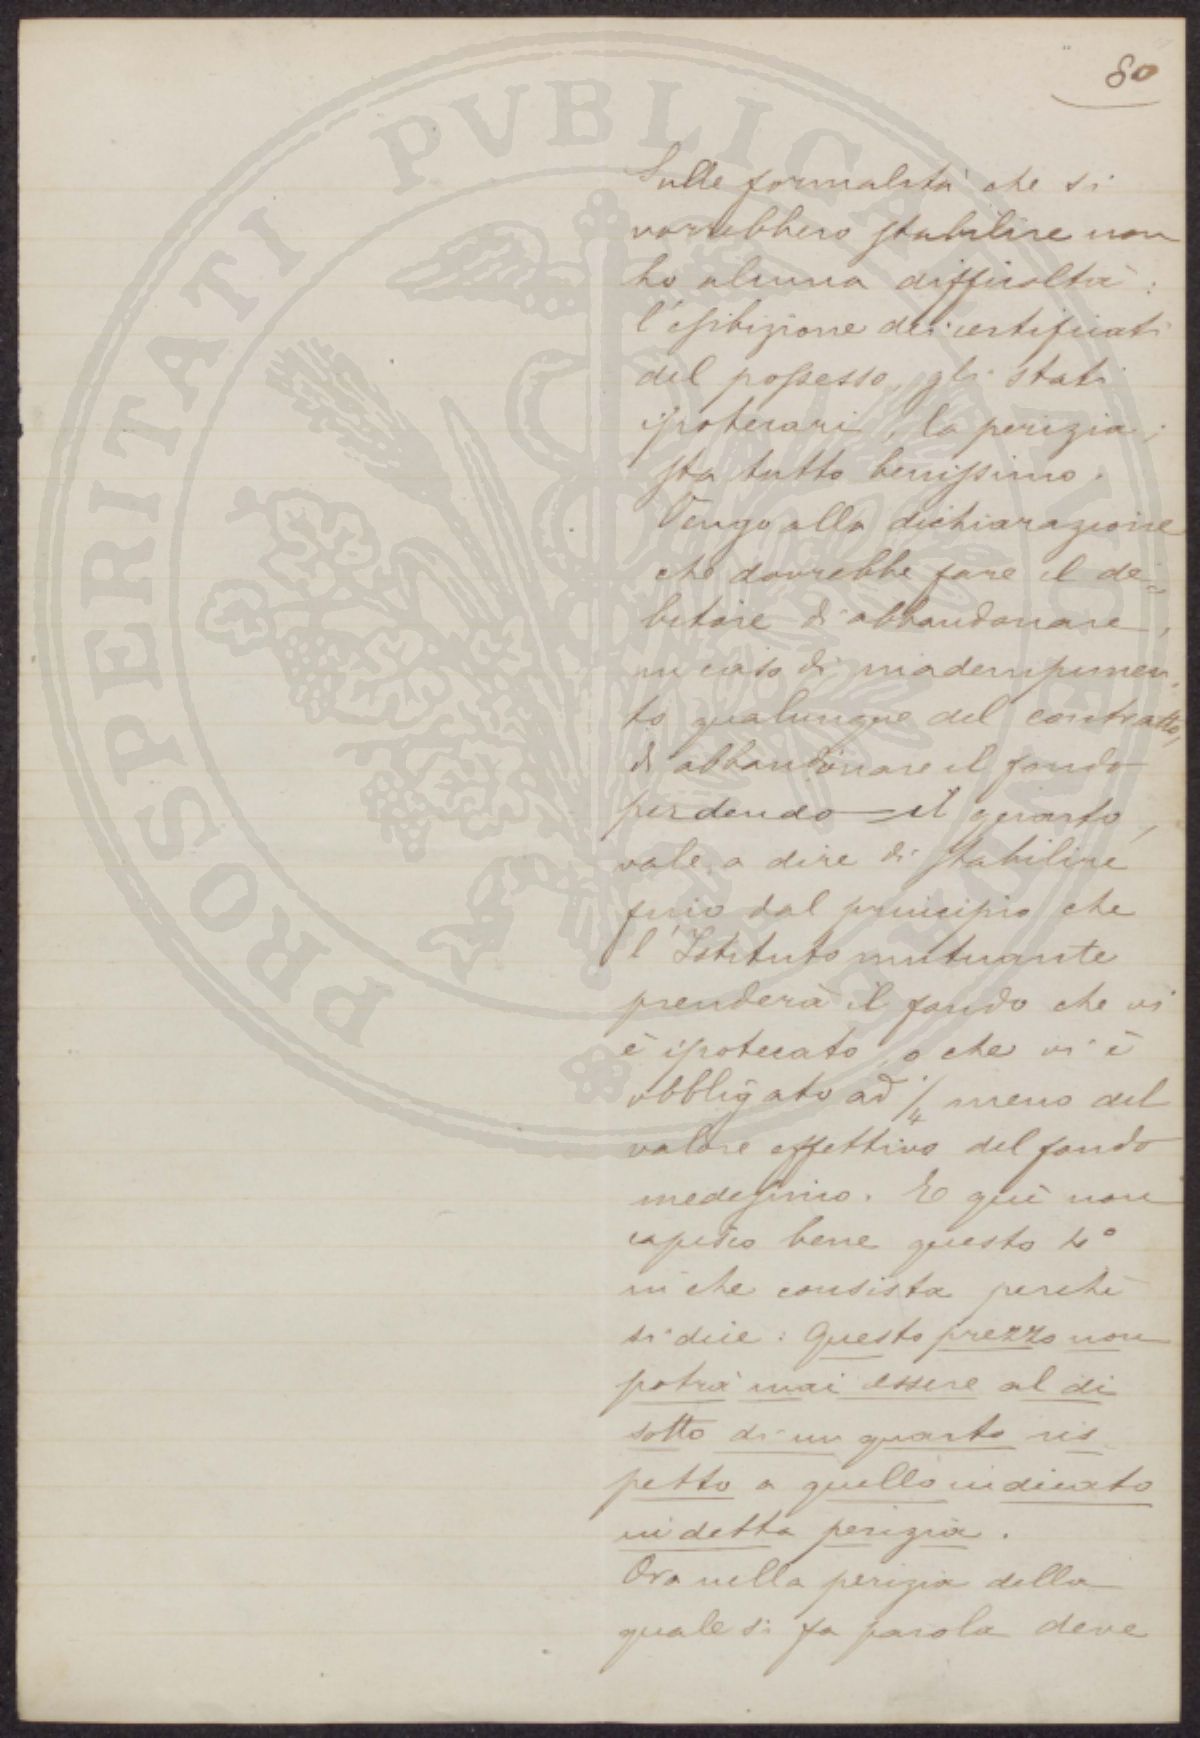 80
Sulle formalità che si
vorrebbero stabilire non
ho alcuna difficoltà:
l'esibizione dei certificati
del possesso, gli stati
ipotecari, la perizia;
sta tutto benissimo.
Vengo alla dichiarazione
che dovrebbe fare il de=
bitore di abbandonare,
in caso di inadempimen=
to qualunque del contratto,
di abbandonare il fondo
perdendo il quarto,
vale a dire di stabilire
fino dal principio che
l'Istituto mutuante
prenderà il fondo che vi
è ipotecato, o che vi è
obbligato ad 1/4 meno del
valore effettivo del fondo
medesimo. E quì non
capisco bene questo 4°
in che consista perchè
si dice: Questo prezzo non
potrà mai essere al di
sotto di un quarto ris
petto a quello indicato
in detta perizia.
Ora nella perizia della
quale si fa parola deve
PROSPERITATI PVBLICAE